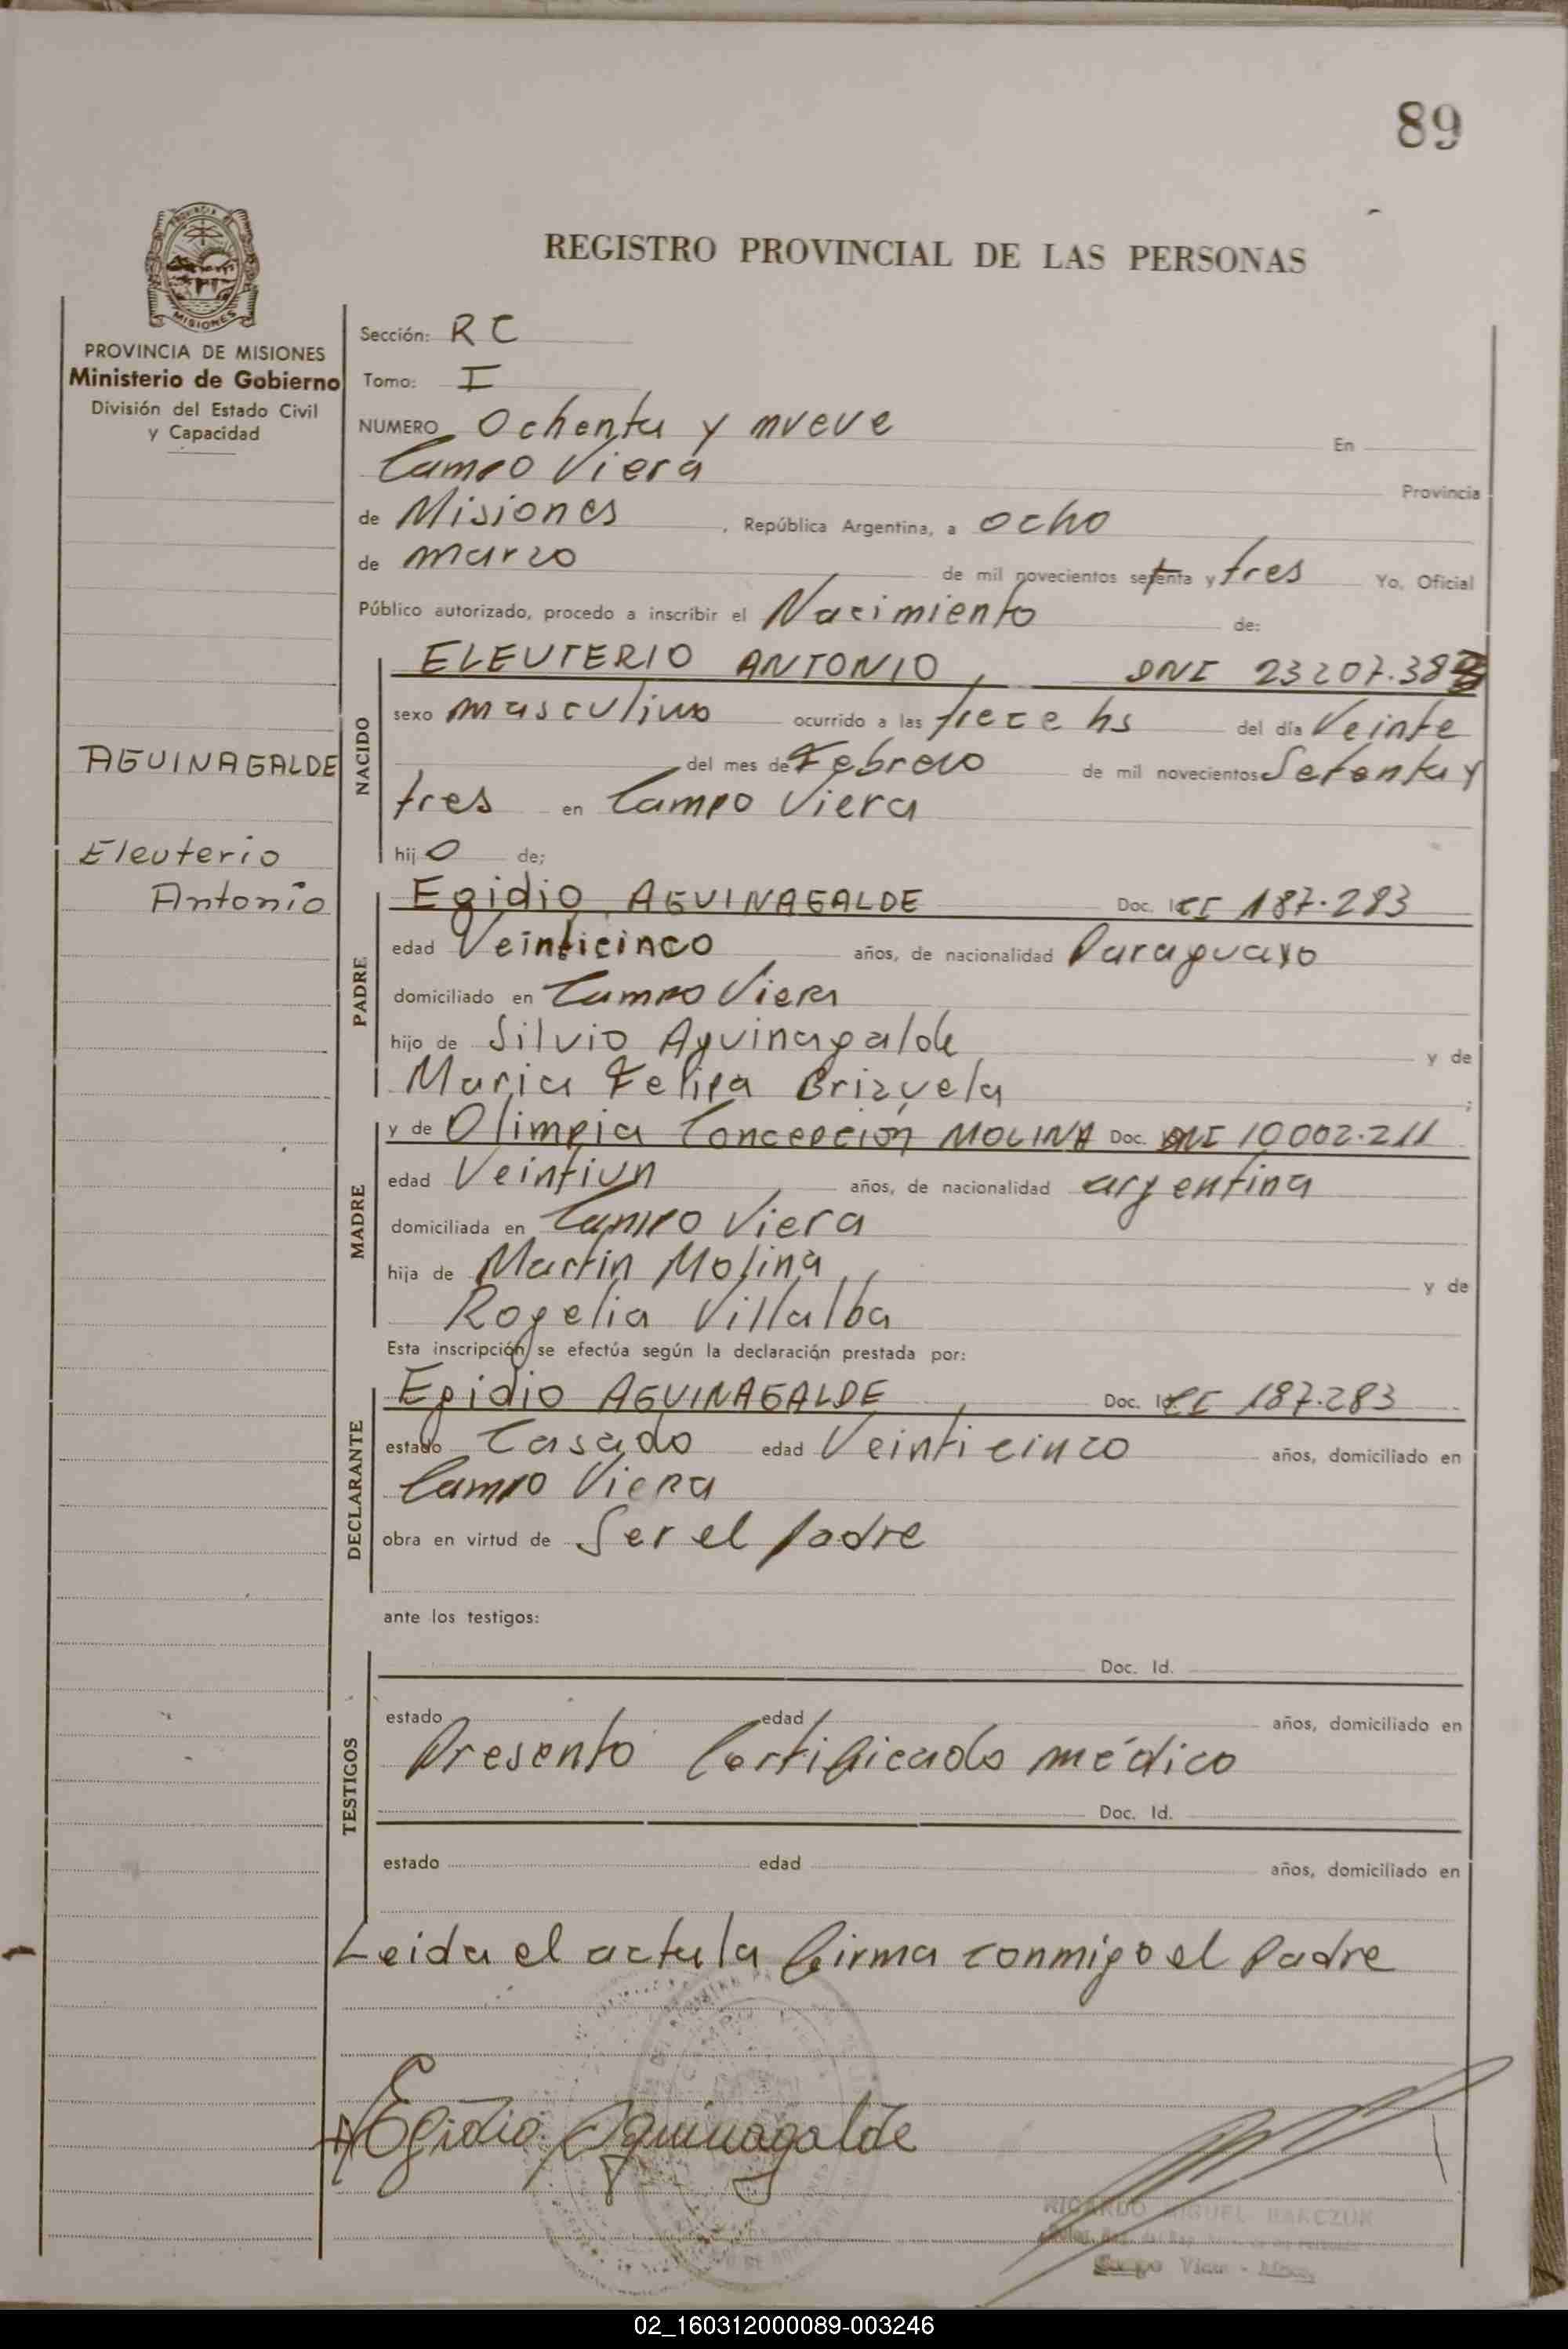 89
REGISTRO PROVINCIAL DE LAS PERSONAS
PROVINCIA DE MISIONES
Ministerio de Gobierno
División del Estado Civil
y Capacidad
Sección: R C
Tomo: I
NUMERO Ochenta y nueve En
Campo Viera Provincia
de Misiones, República Argentina, a ocho
de marzo de mil novecientos setenta y tres Yo, Oficial
Público autorizado, procedo a inscribir el Nacimiento de:
AGUINAGALDE
Eleuterio
Antonio
NACIDO
ELEUTERIO ANTONIO, DNI 23207.38
sexo masculino ocurrido a las trece hs del día Veinte
del mes de Febrero de mil novecientos Setenta y
tres en Campo Viera
hijo de;
PADRE
Egidio AGUINAGALDE Doc. CI 187.283
edad Veinticinco años, de nacionalidad Paraguayo
domiciliado en Campo Viera
hijo de Silvio Aguinagalde y de
Maria Felipa Brizuela;
MADRE
y de Olimpia Concepción MOLINA Doc. DNI 10002.211
edad Veintiun años, de nacionalidad argentina
domiciliada en Campo Viera
hija de Martin Molina y de
Rogelia Villalba
Esta inscripción se efectúa según la declaración prestada por:
DECLARANTE
Egidio AGUINAGALDE, Doc. Id CI 187.283
estado Casado edad Veinticinco años, domiciliado en
Campo Viera
obra en virtud de Ser el padre
ante los testigos:
TESTIGOS
Doc. Id.
estado edad años, domiciliado en
Presento Certificado médico
Doc. Id.
estado edad años, domiciliado en
Leida el acta la firma conmigo el Padre
Egidio Aguinagalde
RICARDO MIGUEL BARCZUK
Campo Viera - Mnes.
02_160312000089-003246